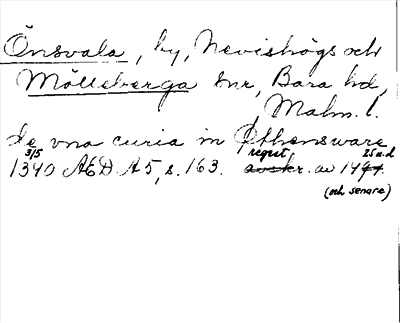 Önsvala, by, Nevishögs och
Mölleberga snr, Bara hd,
Malm. l.
de vna curia in Othensware
3/5 regest 25 n.d
1340 ÆD. A5, s. 163. avskr. av 1494.
(och senare)